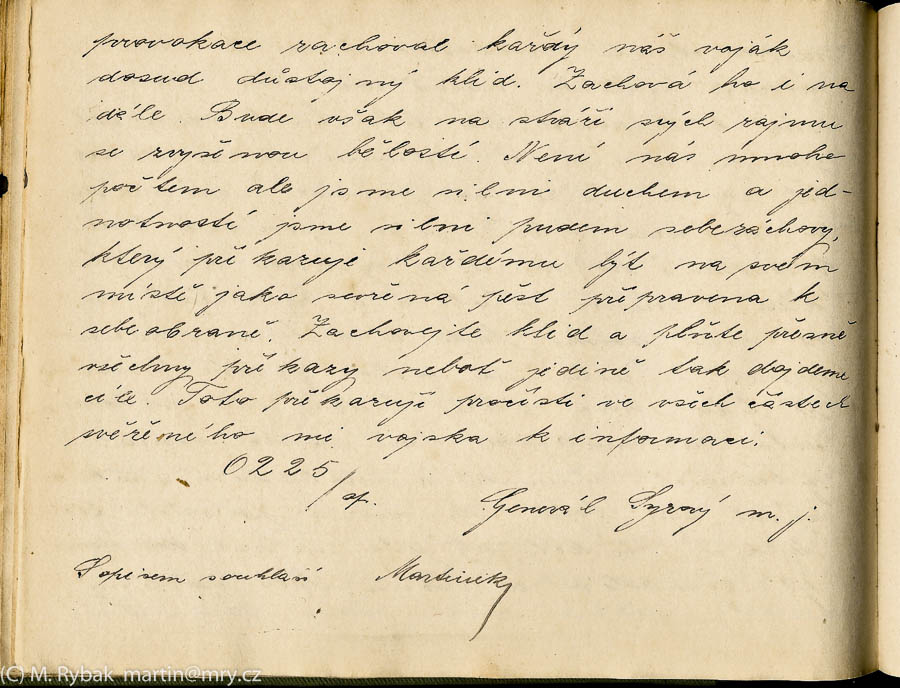 provokace zachoval každý náš voják
dosud důstojný klid. Zachová ho i na
dále. Bude však na stráži svých zájmů
se zvýšenou bělostí. Není nás mnoho
počtem ale jsme silni duchem a jed-
notností jsme silni pudem sebezáchovy,
který přikazuje každému být na svém
místě jako sevřená pěst připravena k
sebeobraně. Zachovejte klid a plňte přesně
všechny příkazy neboť jedině tak dojdeme
cíle. Toto přikazuji pročísti ve všech částech
svěřeného mi vojska k informaci.
0225/op.
Generál Syrový m. j.
S opisem souhlasí
(C) M. Rybak martin@mry.cz